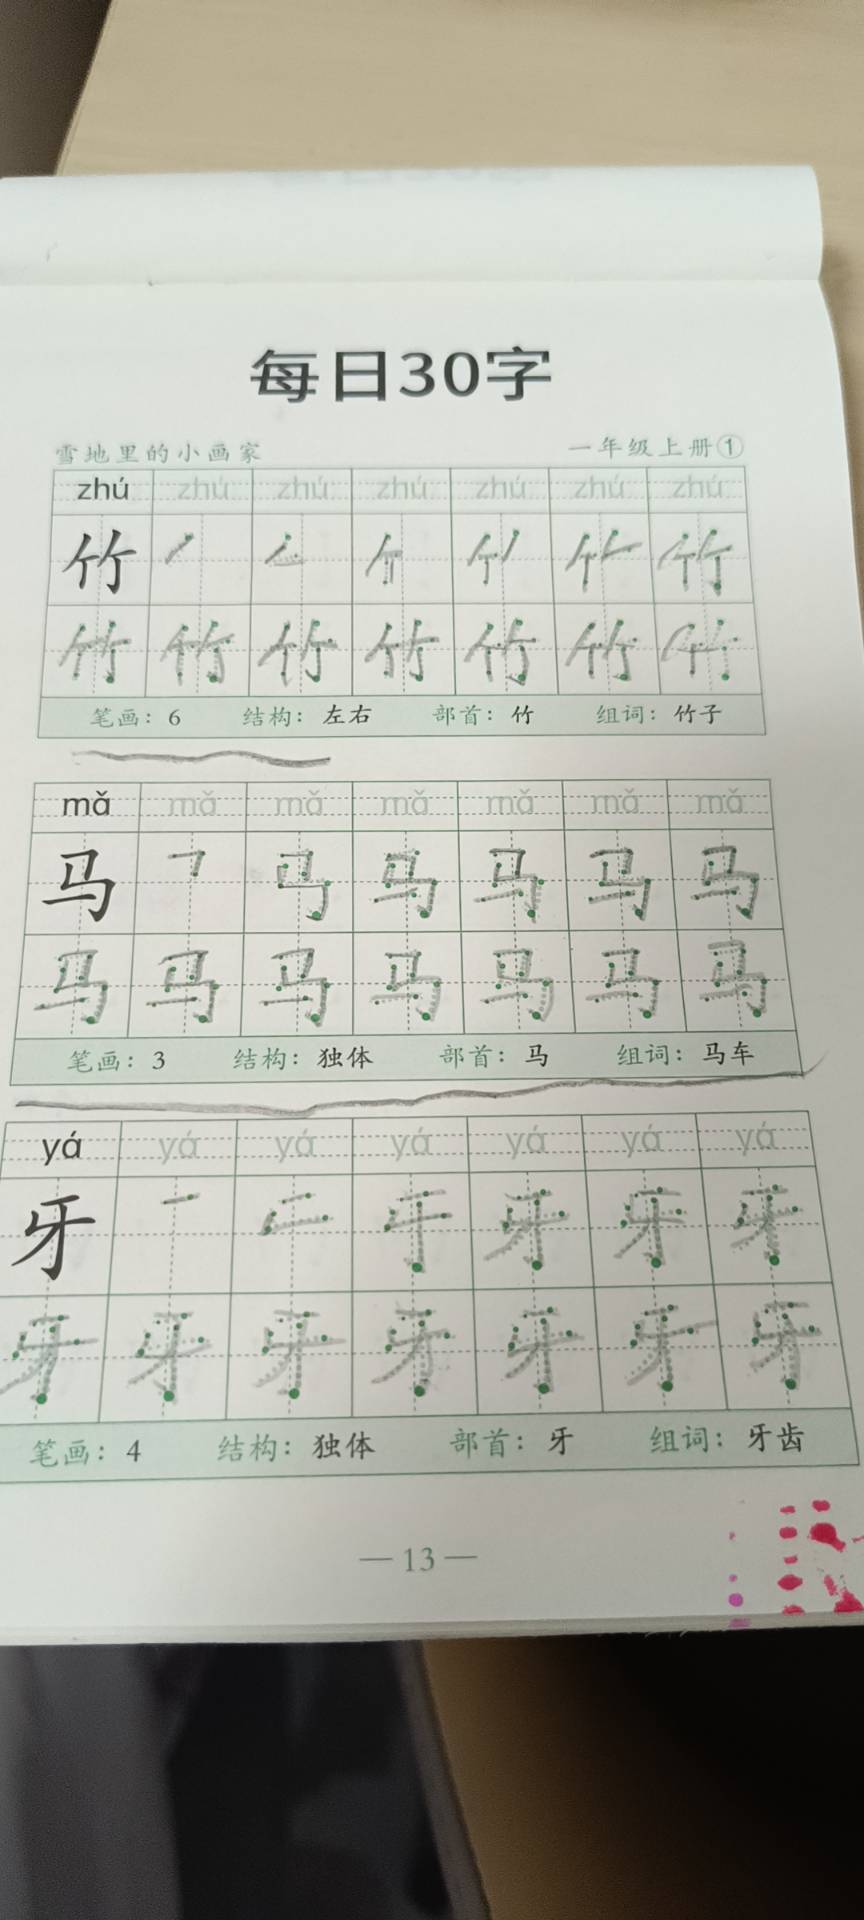 每日30字
雪地里的小画家 一年级上册①
zhú zhú zhú zhú zhú zhú zhú
竹 丿 𠂉 亇 竹 竹 竹
竹 竹 竹 竹 竹 竹 竹
笔画：6 结构：左右 部首：竹 组词：竹子
mǎ mǎ mǎ mǎ mǎ mǎ mǎ
马 𠃍 马 马 马 马 马
马 马 马 马 马 马 马
笔画：3 结构：独体 部首：马 组词：马车
yá yá yá yá yá yá yá
牙 一 二 于 牙 牙 牙
牙 牙 牙 牙 牙 牙 牙
笔画：4 结构：独体 部首：牙 组词：牙齿
— 13 —